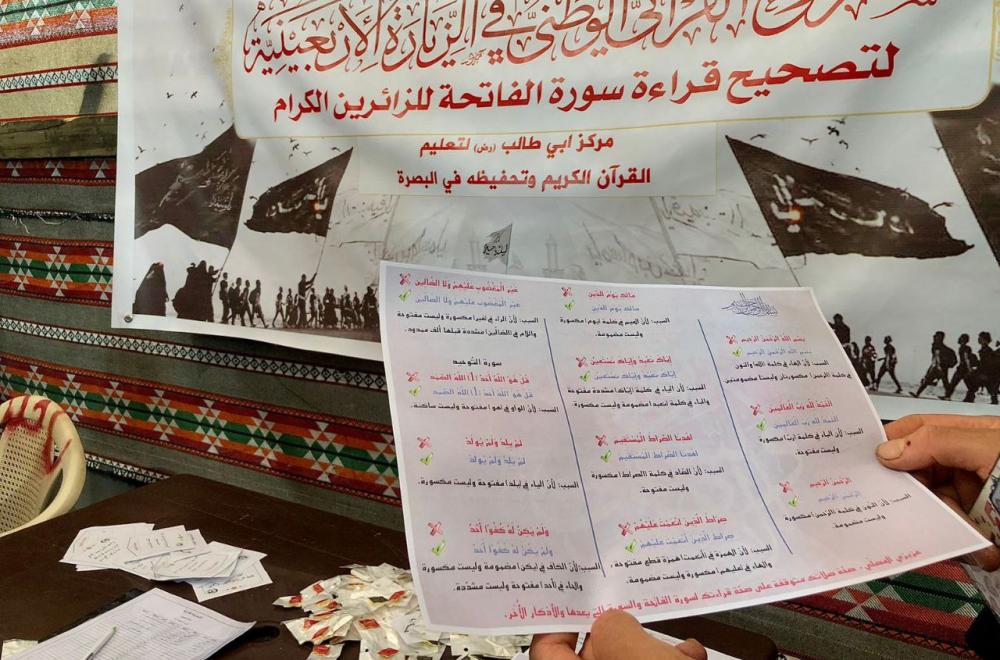 القرآني الوطني في الزيارة الأربعينية
لتصحيح قراءة سورة الفاتحة للزائرين الكرام
مركز أبي طالب (رض) لتعليم
القرآن الكريم وتحفيظه في البصرة
بسم الله الرحمن الرحيم
بسم الله الرحمن الرحيم
بسم الله الرحمن الرحيم
السبب: لأن الهاء في كلمة الله والنون
في كلمة الرحمن مكسورتان وليستا مضمومتين
الحمد لله رب العالمين
الحمد لله رب العالمين
السبب: لأن الباء في كلمة (رب) مكسورة
وليست مفتوحة.
الرحمن الرحيم
الرحمن الرحيم
السبب: لأن النون في كلمة (الرحمن) مكسورة
وليست مضمومة.
مالك يوم الدين
مالك يوم الدين
السبب: لأن الميم في كلمة (يوم) مكسورة
وليست مضمومة.
إياك نعبد وإياك نستعين
إياك نعبد وإياك نستعين
السبب: لأن الياء في كلمة (إياك) مشددة مفتوحة
والباء في كلمة (نعبد) مضمومة وليست مكسورة.
اهدنا الصراط المستقيم
اهدنا الصراط المستقيم
السبب: لأن الصاد في كلمة (الصراط) مكسورة
وليست مفتوحة.
صراط الذين أنعمت عليهم
صراط الذين أنعمت عليهم
السبب: لأن الهمزة في (أنعمت) همزة قطع مفتوحة ,
والهاء في (عليهم) مكسورة وليست مضمومة.
غير المغضوب عليهم ولا الضالين
غير المغضوب عليهم ولا الضالين
السبب: لأن الراء في (غير) مكسورة وليست مفتوحة
واللام في (الضالين) مشددة قبلها ألف ممدود.
سورة التوحيد
قل هو الله أحد (1) الله الصمد
قل هو الله أحد (1) الله الصمد
السبب: لأن الواو في (هو) مفتوحة وليست ساكنة.
لم يلد ولم يولد
لم يلد ولم يولد
السبب: لأن الياء في (يلد) مفتوحة وليست مكسورة.
ولم يكن له كفوا أحد
ولم يكن له كفوا أحد
السبب: لأن الكاف في (يكن) مضمومة وليست مكسورة
والحاء في (أحد) مفتوحة وليست مشددة.
عزيزي المصلي، صحة صلاتك متوقفة على صحة قراءتك لسورة الفاتحة والسورة التي بعدها والأذكار الأخر.